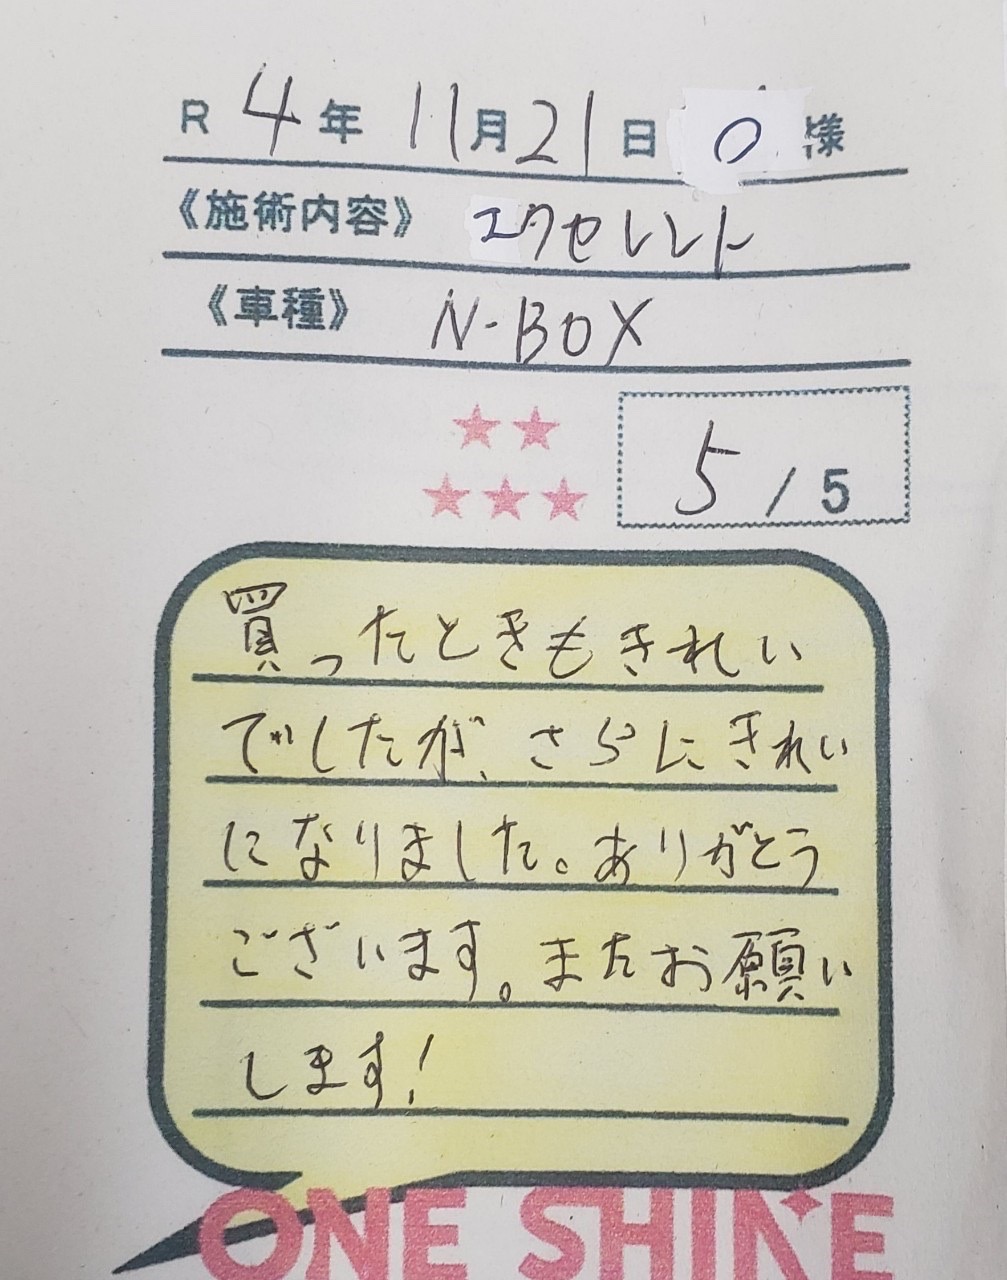 R 4年 11月21日 O 様
《施術内容》 エクセレント
《車種》 N-BOX
5 / 5
買ったときもきれい
でしたが、さらにきれい
になりました。ありがとう
ございます。またお願い
します!
ONE SHINE